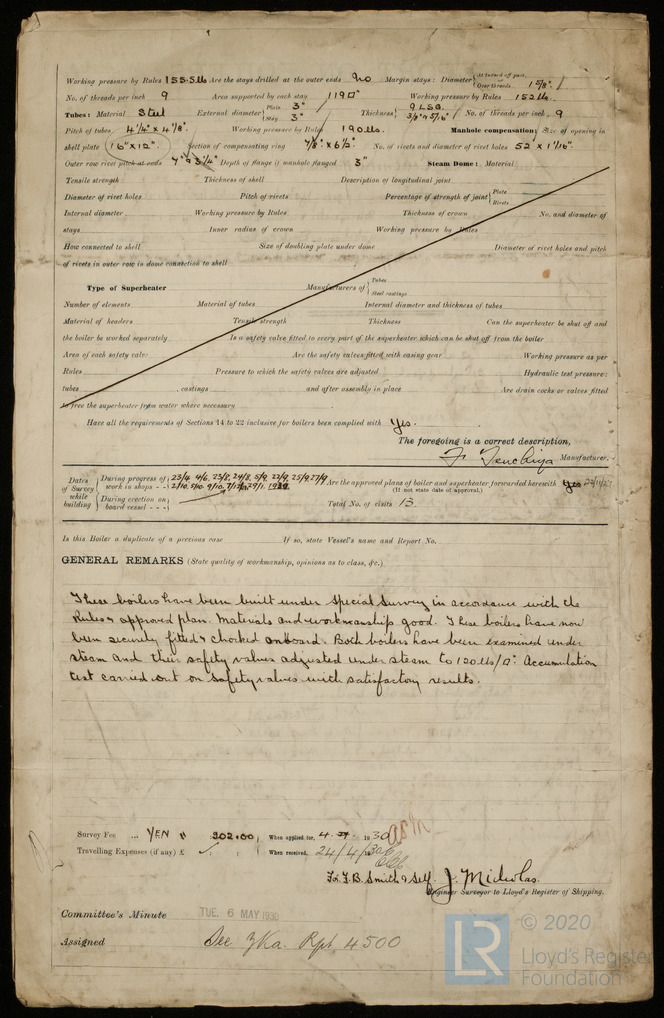 Working pressure by Rules 155.5 lb Are the stays drilled at the outer ends No Margin stays: Diameter { At turned off part, or Over threads 1 5/8"
No. of threads per inch 9 Area supported by each stay 119□" Working pressure by Rules 152 lb.
Tubes: Material Steel External diameter { Plain 3" Stay 3" Thickness { 9 LSG. 3/8" & 5/16" No. of threads per inch 9
Pitch of tubes 4 1/4" x 4 1/8". Working pressure by Rules 190 lbs. Manhole compensation: Size of opening in
shell plate 16" x 12". Section of compensating ring 7/8" x 6 1/2" No. of rivets and diameter of rivet holes 52 x 1 1/16".
Outer row rivet pitch at ends Depth of flange if manhole flanged 3" Steam Dome: Material
Tensile strength Thickness of shell Description of longitudinal joint
Diameter of rivet holes Pitch of rivets Percentage of strength of joint { Plate Rivets
Internal diameter Working pressure by Rules Thickness of crown No. and diameter of
stays Inner radius of crown Working pressure by Rules
How connected to shell Size of doubling plate under dome Diameter of rivet holes and pitch
of rivets in outer row in dome connection to shell
Type of Superheater Manufacturers of { Tubes Steel castings
Number of elements Material of tubes Internal diameter and thickness of tubes
Material of headers Tensile strength Thickness Can the superheater be shut off and
the boiler be worked separately Is a safety valve fitted to every part of the superheater which can be shut off from the boiler
Area of each safety valve Are the safety valves fitted with easing gear Working pressure as per
Rules Pressure to which the safety valves are adjusted Hydraulic test pressure:
tubes castings and after assembly in place Are drain cocks or valves fitted
to free the superheater from water where necessary
Have all the requirements of Sections 14 to 22 inclusive for boilers been complied with Yes.
The foregoing is a correct description,
Manufacturer.
Dates of Survey while building { During progress of work in shops - - 23/4, 4/6, 23/8, 24/8, 5/9, 22/9, 25/9, 27/9 Are the approved plans of boiler and superheater forwarded herewith Yes
2/10, 5/10, 9/10, (If not state date of approval.)
During erection on board vessel - - - Total No. of visits 13.
Is this Boiler a duplicate of a previous case If so, state Vessel's name and Report No.
GENERAL REMARKS (State quality of workmanship, opinions as to class, &c.)
These boilers have been built under Special Survey in accordance with the
Rules & approved plan. Materials and workmanship good. These boilers have now
been securely fitted & chocked onboard. Both boilers have been examined under
steam and their safety valves adjusted under steam to 120 lbs/□". Accumulation
test carried out on safety valves with satisfactory results.
Survey Fee ... YEN " 302.00 When applied for, 1930
Travelling Expenses (if any) £ When received, 24/4/1930
For F.B. Smith & Self. J. Nicholas.
Engineer Surveyor to Lloyd's Register of Shipping.
Committee's Minute TUE. 6 MAY 1930
Assigned See Rpt. 4500
LR © 2020
Lloyd's Register
Foundation